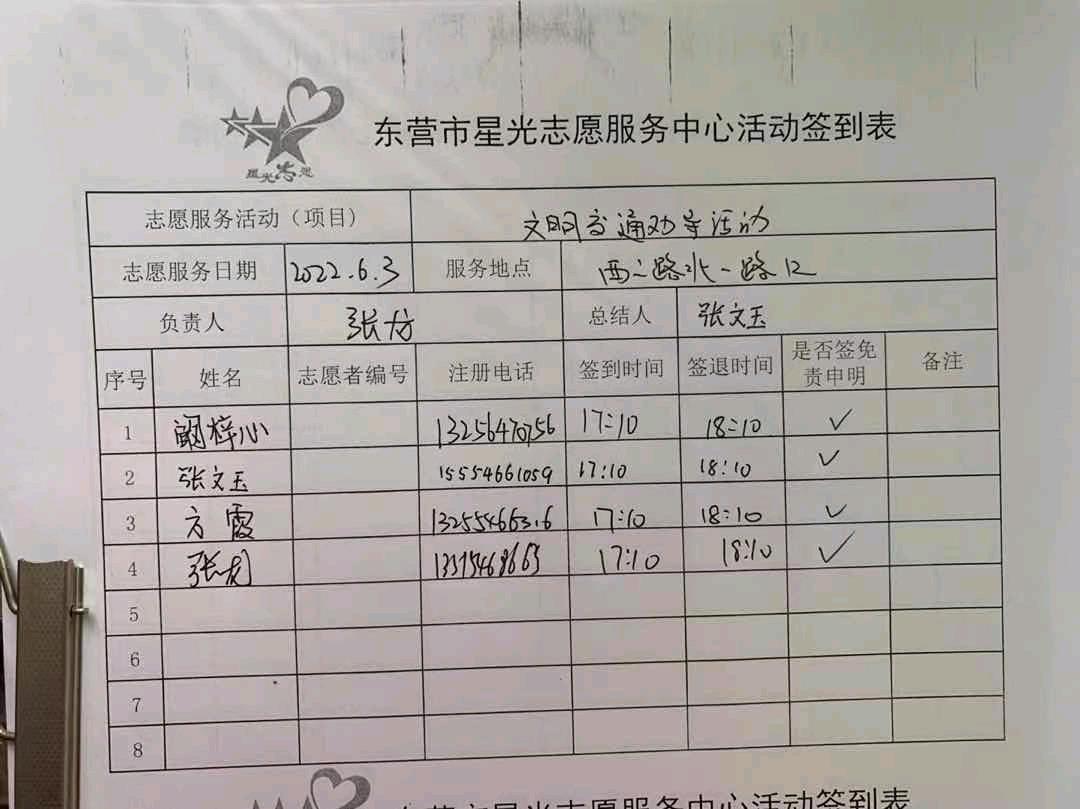 星光志愿
东营市星光志愿服务中心活动签到表
志愿服务活动（项目） 文明交通劝导活动
志愿服务日期 2022.6.3 服务地点 西二路北一路口
负责人 张龙 总结人 张文玉
序号 姓名 志愿者编号 注册电话 签到时间 签退时间 是否签免责申明 备注
1 梓心 13256470756 17:10 18:10 ✓
2 张文玉 15554661059 17:10 18:10 ✓
3 方霞 17:10 18:10 ✓
4 张龙 17:10 18:10 ✓
5
6
7
8
东营市星光志愿服务中心活动签到表